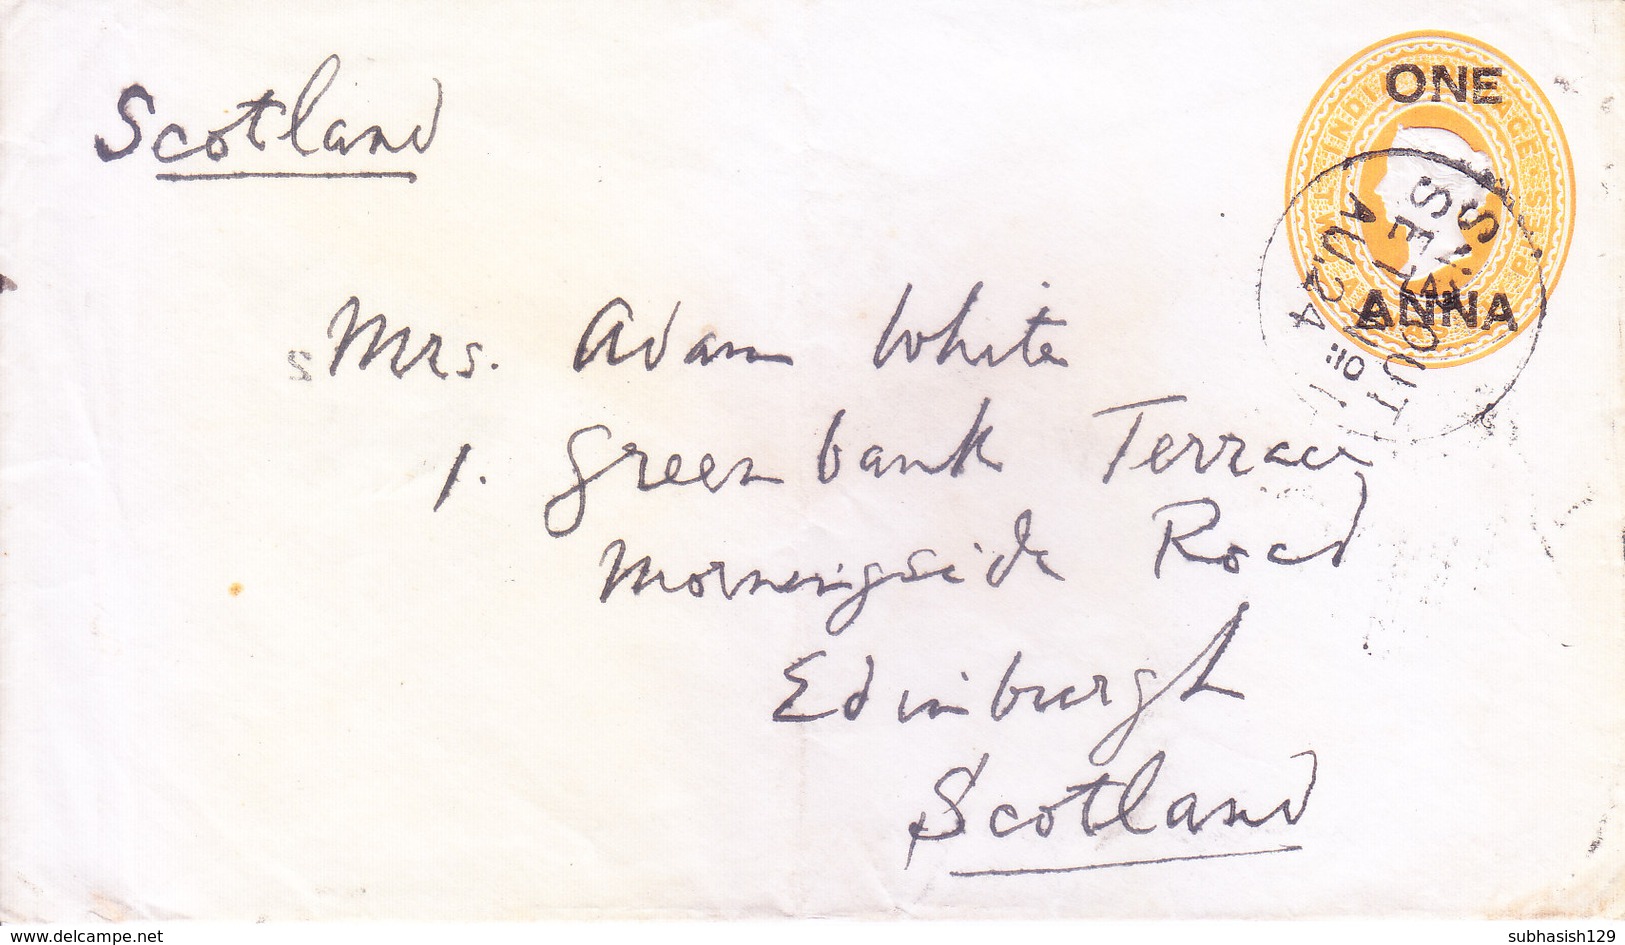 Scotland
ONE
ANNA
AU 24
Mrs. Adam White
1. Greenbank Terrace
Morningside Road
Edinburgh
Scotland
www.delcampe.net
subhasish129